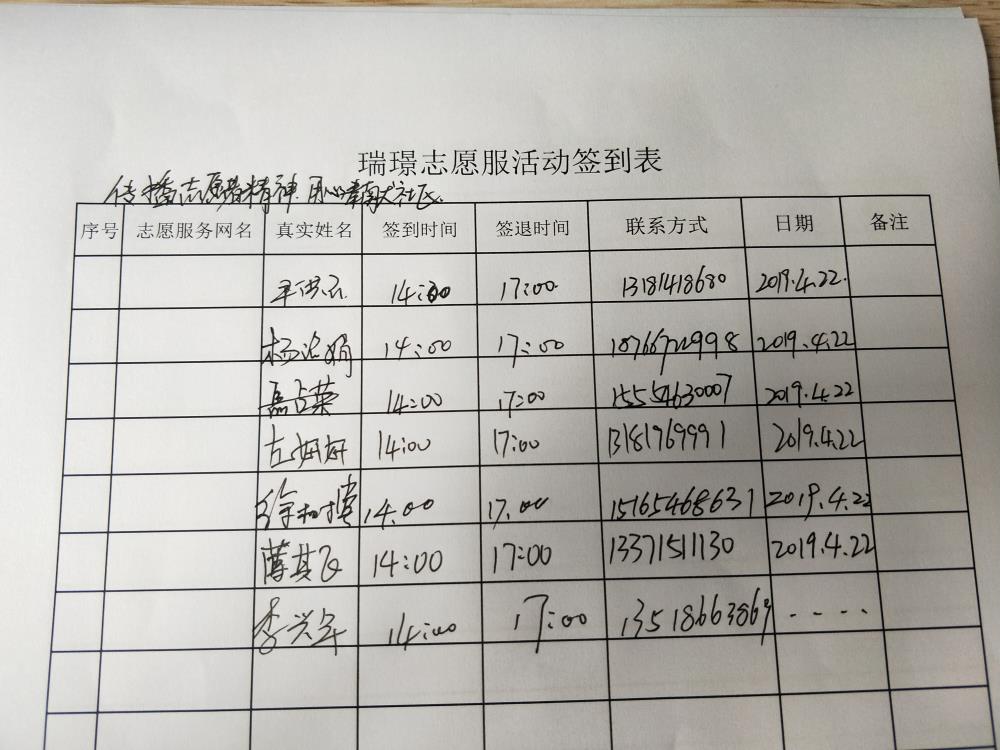 瑞璟志愿服活动签到表
传播志愿者精神 用心奉献社区
序号 志愿服务网名 真实姓名 签到时间 签退时间 联系方式 日期 备注
14:00 17:00 13181418680 2019.4.22.
14:00 17:00 2019.4.22
14:00 17:00 15554630007 2019.4.22
左妍妍 14:00 17:00 13181769991 2019.4.22
14.00 17.00 15165468631 2019.4.22
薄其飞 14:00 17:00 13371511130 2019.4.22
李兴年 14:00 17:00 13518663869 ····